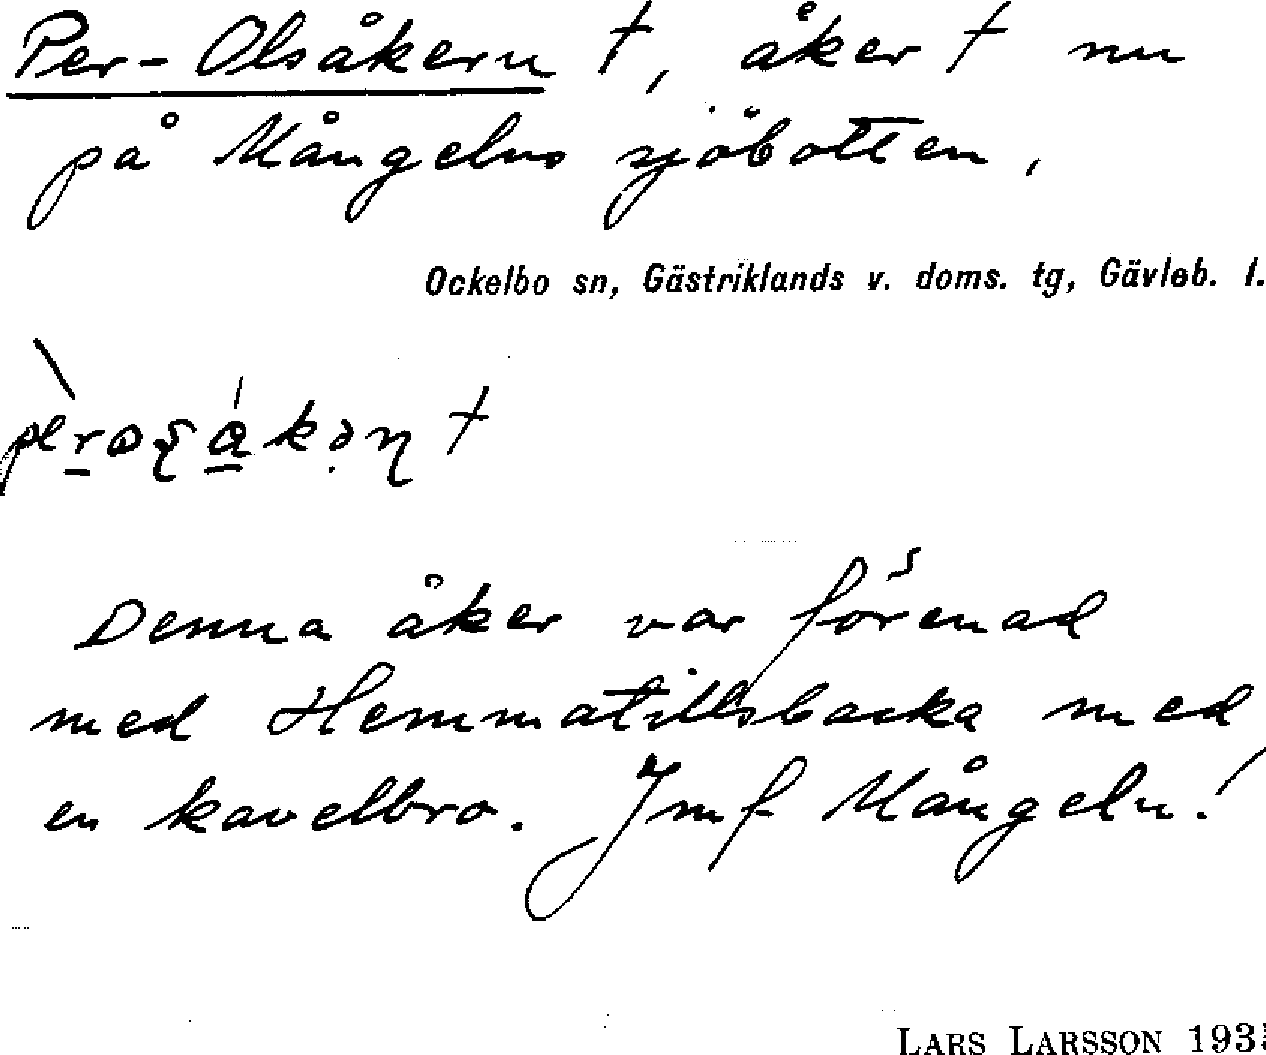 Per-Olsåkern †, åker † nu
på Mångelns sjöbotten.
Ockelbo sn, Gästriklands v. doms. tg, Gävleb. l.
Denna åker var förenad
med Hemmatillsbacka med
en kavelbro. Jmf Mångeln!
LARS LARSSON 193